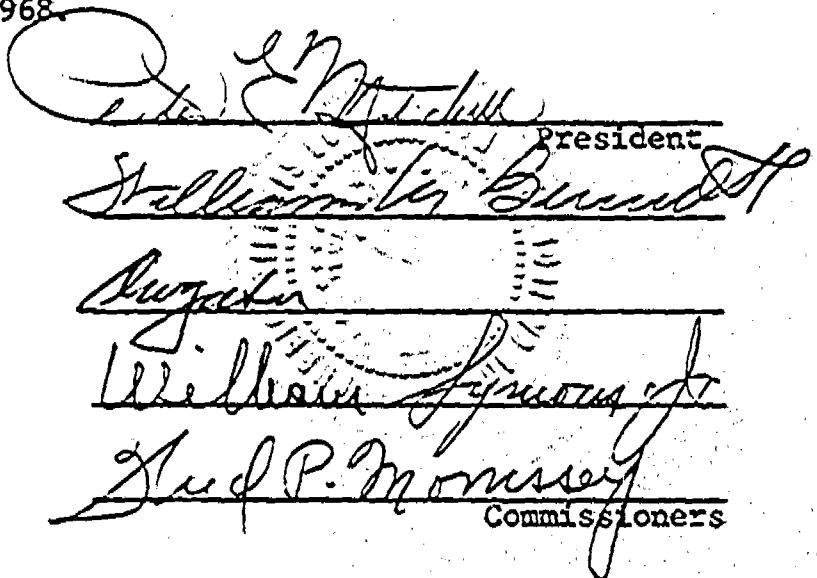 968.
Peter E Mitchell
President
William M. Bennett
William Symons Jr
Fred P. Morrissey
Commissioners